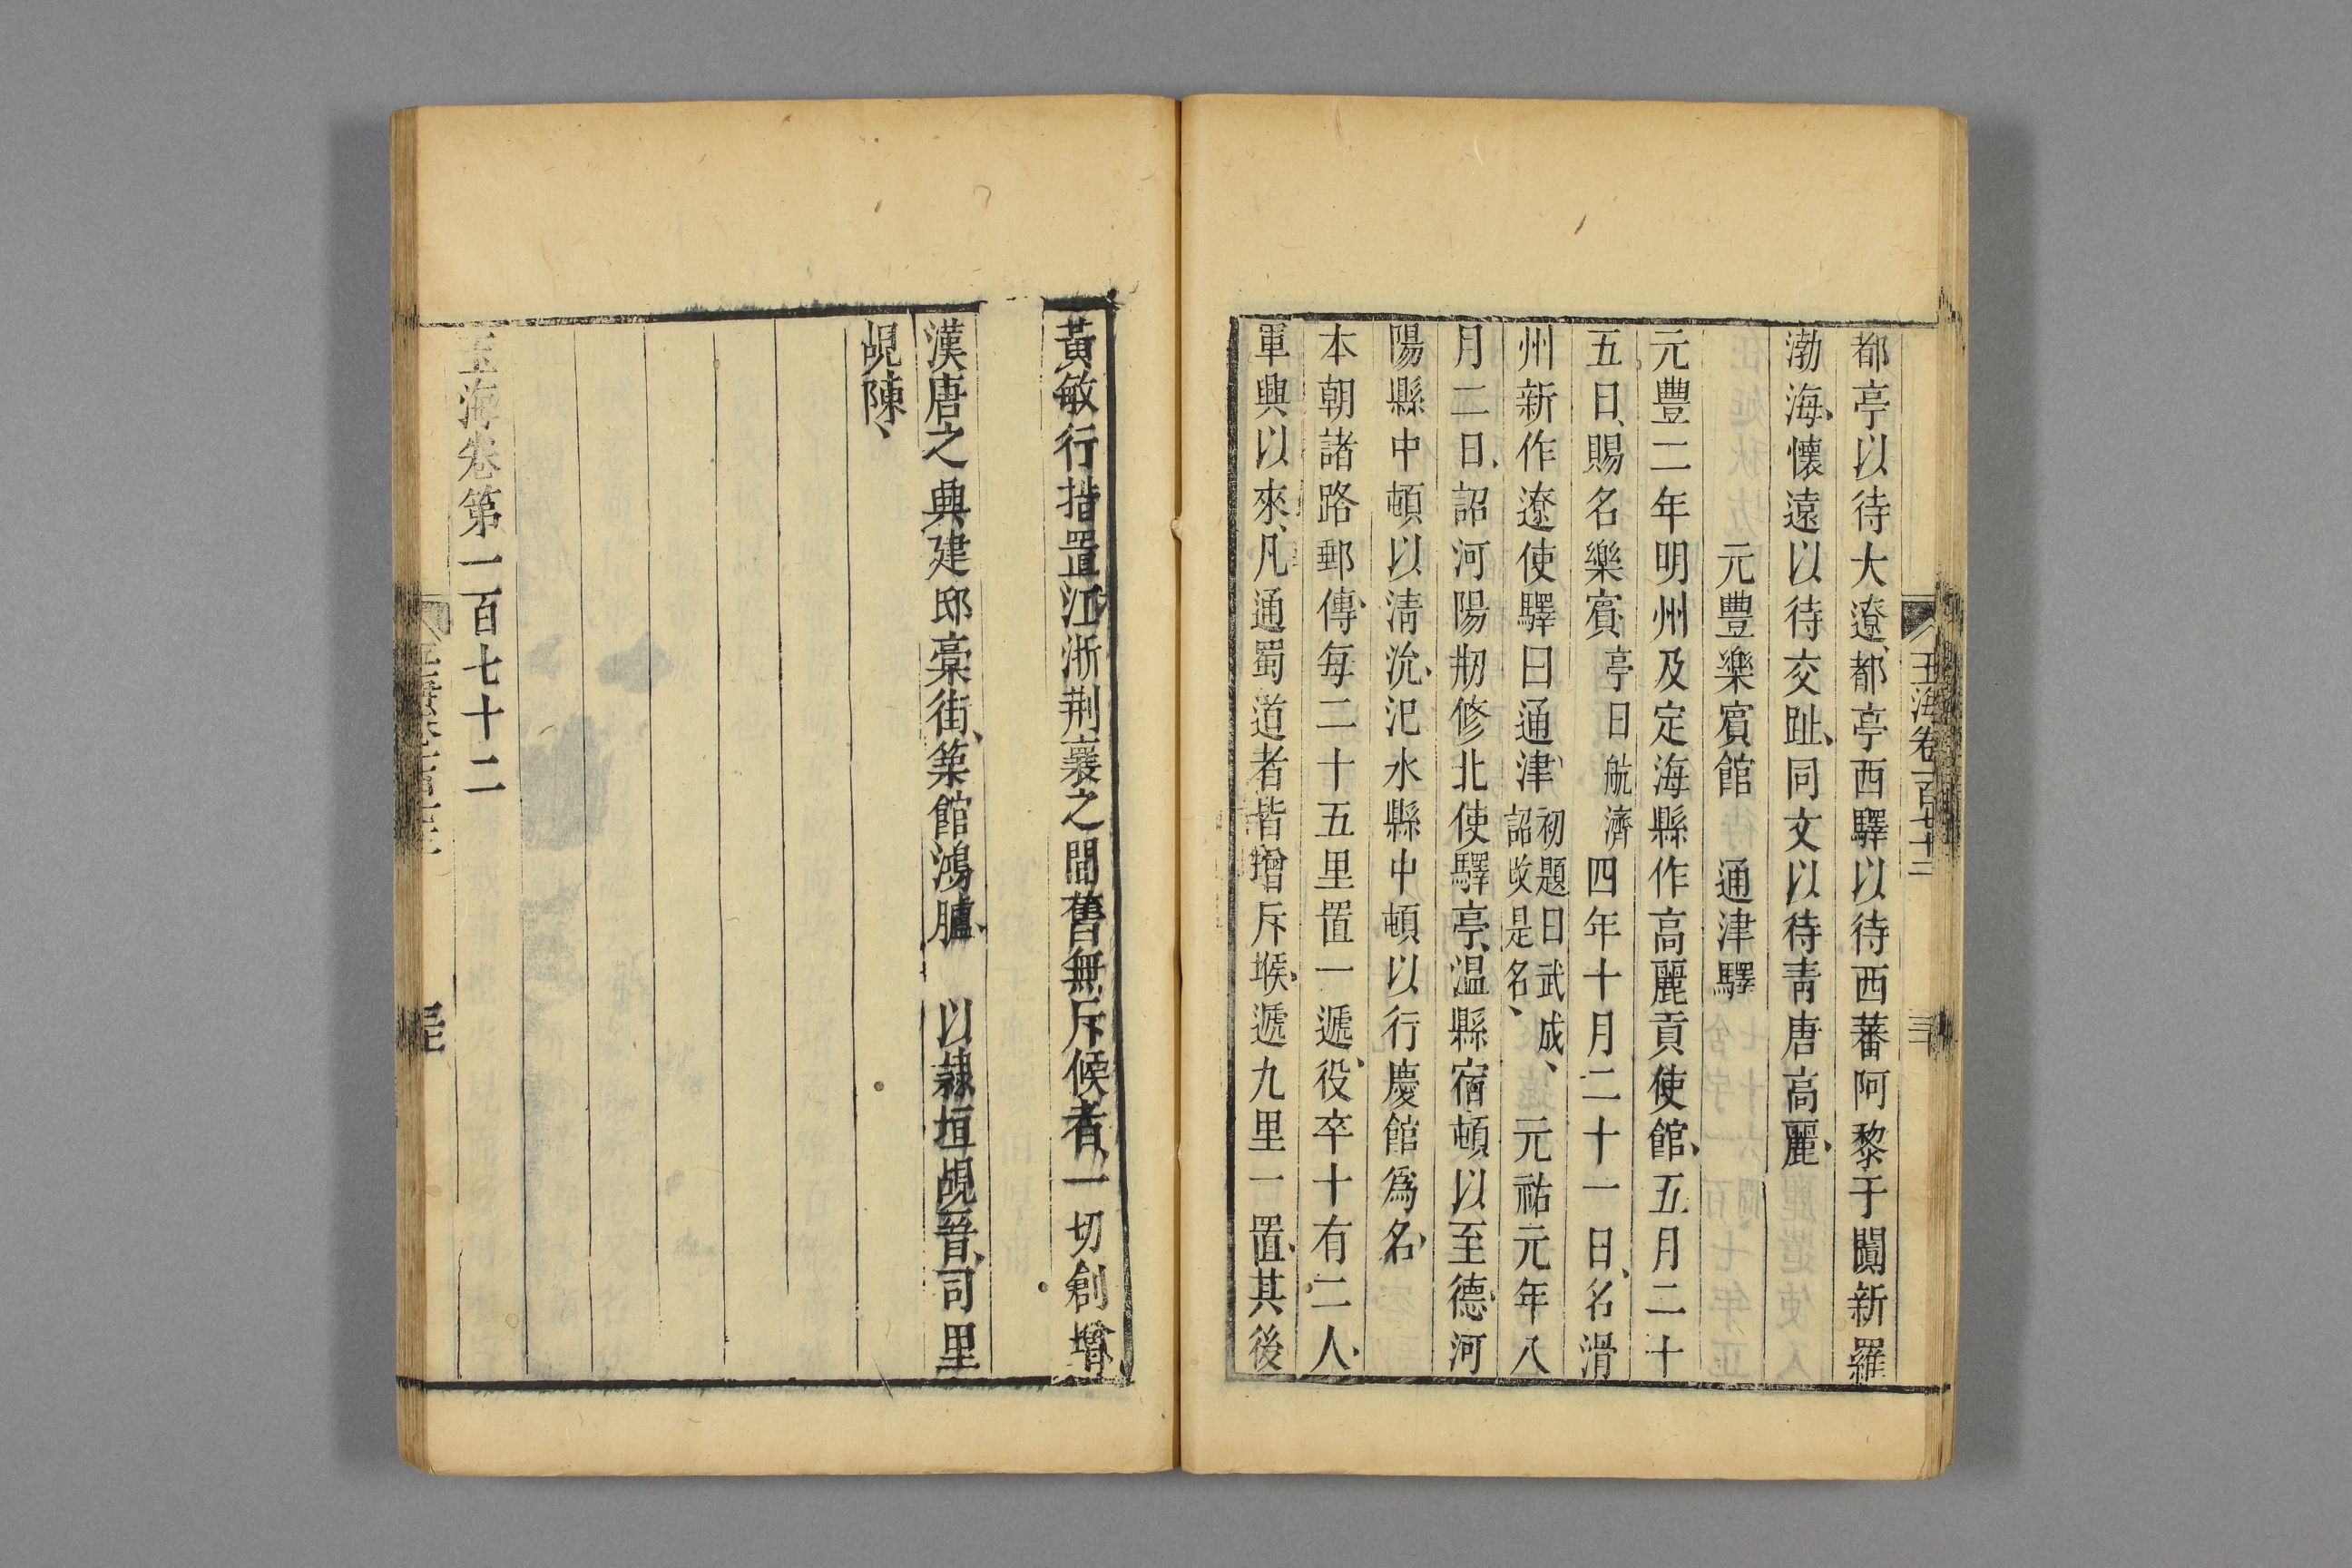 都亭以待大遼、都亭西驛以待西蕃阿黎于闐新羅
渤海、懷遠以待交趾、同文以待青唐高麗、
元豐樂賓館 通津驛
元豐二年明州及定海縣作高麗貢使館、五月二十
五日、賜名樂賓、亭曰航濟四年十月二十一日、名滑
州新作遼使驛曰通津、初題曰武成、詔改是名、元祐元年八
月二日、詔河陽刱修北使驛亭、溫縣宿頓以至德、河
陽縣中頓以清沇、汜水縣中頓以行慶館爲名、
本朝諸路郵傳、每二十五里置一遞、役卒十有二人、
軍興以來、凡通蜀道者皆增斥堠、遞九里一置、其後
玉海卷一百七十二
黃敏行措置江浙荆襄之間舊無斥候者、一切創增
漢唐之典建邸槀街、築館鴻臚、 以隷垣覘晉、司里
覘陳、
玉海卷第一百七十二